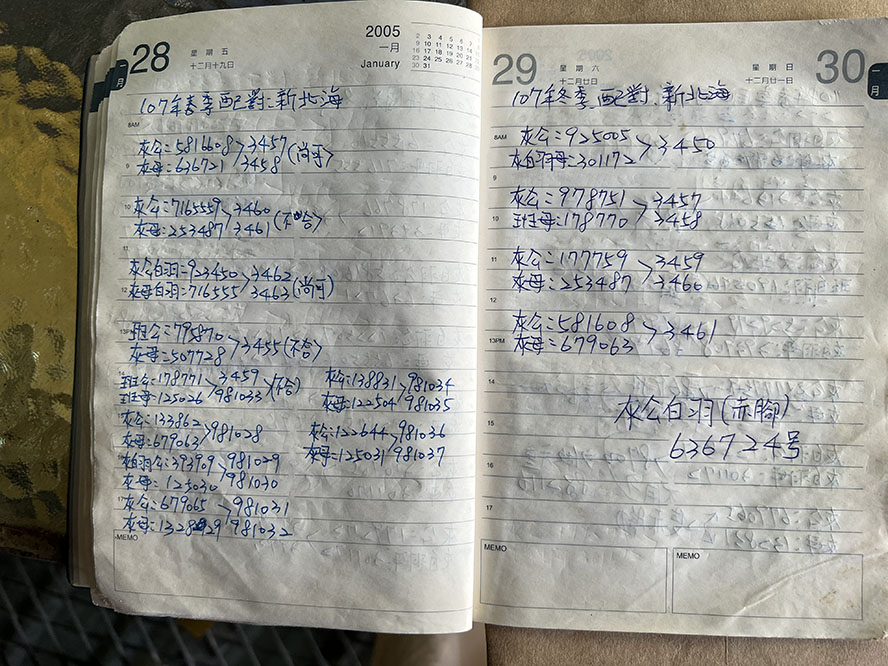 28
星期五
十二月十九日
2005
一月
January
2 3 4 5 6 7 8
9 10 11 12 13 14 15
16 17 18 19 20 21 22
23 24 25 26 27 28 29
30 31
一月
107年春季配對:新北海
8AM
灰公:5816608>3457(尚可)
灰母:636721 3458
9
10
灰公:7165559>3460(不合)
灰母:253487 3461
11
灰公白羽:923450>3462
12
灰母白羽:716555 3463(尚可)
13PM
斑公:795870>3455(不合)
灰母:507728
14
斑公:178771>3459(不合)
斑母:125026 981033
灰公:138831>981034
灰母:122504 981035
灰公:133862>981028
灰母:679063
灰公:122644>981036
灰母:125031 981037
16
灰白羽公:393909>981029
灰母:125030 981030
17
灰公:679065>981031
灰母:1328 29 981032
MEMO
29
星期六
十二月廿日
星期日
十二月廿一日
30
一月
107年冬季配對:新北海
8AM
灰公:925005>3450
灰白羽母:301172
9
灰公:978751>3457
10
斑母:178770 3458
11
灰公:177759>3459
灰母:253487 3460
12
灰公:581608>3461
13PM
灰母:679063
14
灰公白羽(赤腳)
15
636724号
16
17
MEMO
MEMO